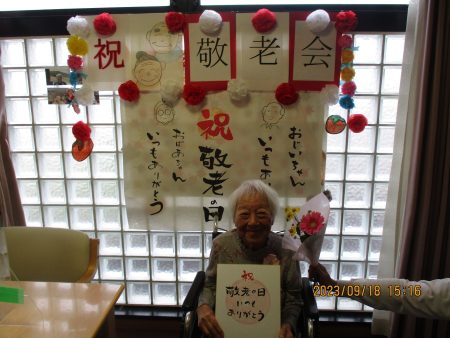 祝 敬老会
祝
敬老の日
おじいちゃん
いつもありがとう
おばあちゃん
いつもありがとう
祝
敬老の日
いつも
ありがとう
2023/09/18 15:16